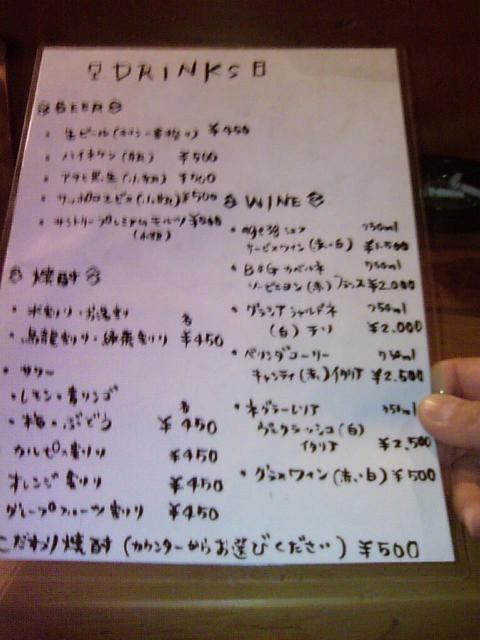 DRINKS
BEER
・生ビール(キリン一番搾り) ¥450
・ハイネケン(瓶) ¥500
・アサヒ黒生(小瓶) ¥500
・サッポロエビス(小瓶) ¥500
・サントリープレミアムモルツ ¥500
(小瓶)
焼酎
・水割り・お湯割
・烏龍割り・緑茶割り 各 ¥450
・サワー
・レモン・青リンゴ
・梅・ぶどう 各 ¥450
カルピス割り ¥450
オレンジ割り ¥450
グレープフルーツ割り ¥450
こだわり焼酎(カウンターからお選びください) ¥500
WINE
750ml
サービスワイン(赤・白) ¥1.500
・B&Gカベルネ 750ml
ソービニヨン(赤)フランス ¥2.000
シャルドネ 750ml
(白)チリ ¥2.000
・ベリンダコーリー 750ml
キャンティ(赤)イタリア ¥2.500
750ml
(白)
イタリア ¥2.500
・グラスワイン(赤・白) ¥500